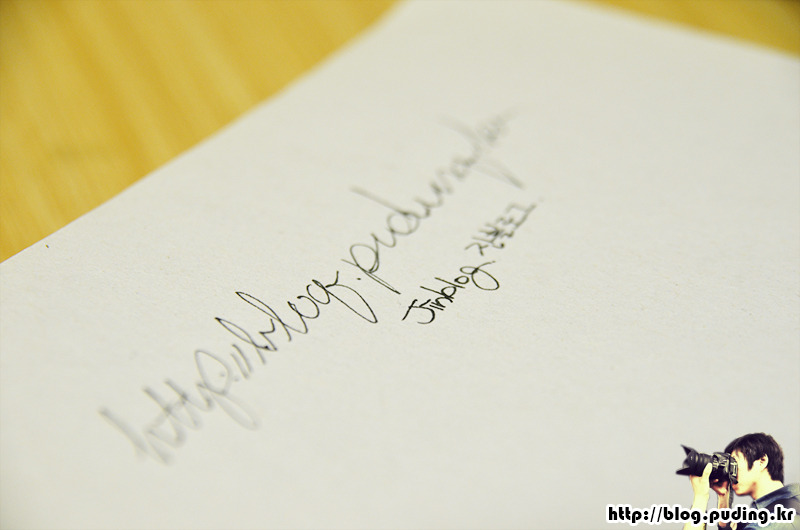 http://blog.puding.kr
Jinblog 진블로그
http://blog.puding.kr